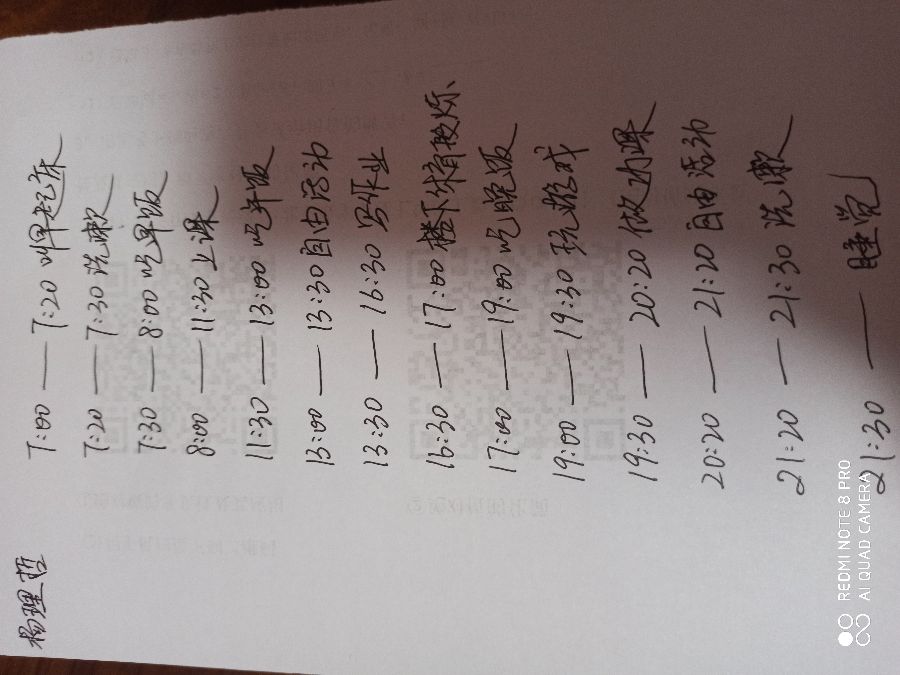 杨理哲
7:00 — 7:20 叫早起床
7:20 — 7:30 洗漱
7:30 — 8:00 吃早饭
8:00 — 11:30 上课
11:30 — 13:00 吃午饭
13:00 — 13:30 自由活动
13:30 — 16:30 写作业
16:30 — 17:00 楼下体育锻炼
17:00 — 19:00 吃晚饭
19:00 — 19:30 玩游戏
19:30 — 20:20 做小课
20:20 — 21:20 自由活动
21:20 — 21:30 洗漱
21:30 — 睡觉
REDMI NOTE 8 PRO
AI QUAD CAMERA